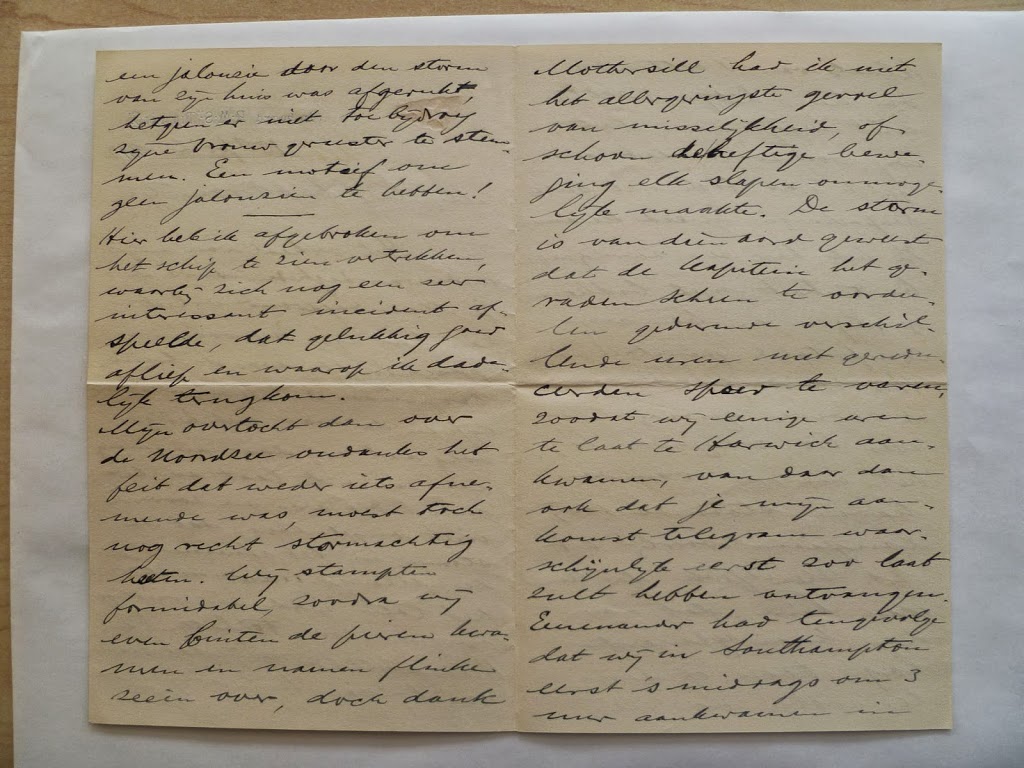 een jalousie door den storm
van zijn huis was afgerukt,
hetgeen er niet toe bijdroeg
zijne vrouw geruster te stem-
men. Een motief om
geen jalouzieën te hebben!
Hier heb ik afgebroken om
het schip te zien vertrekken,
waarbij zich nog een zeer
interessant incident af-
speelde, dat gelukkig goed
afliep en waarop ik dade-
lijk terugkom.
Mijn overtocht dan over
de Noordzee ondanks het
feit dat weder iets afne-
mende was, moest toch
nog recht stormachtig
heeten. Wij stampten
formidabel, zoodra wij
even buiten de pieren kwa-
men en namen flinke
zeeën over, doch dank
Mothersill had ik niet
het allergeringste gevoel
van misselijkheid, of-
schoon de heftige bewe-
ging elk slapen onmoge-
lijk maakte. De storm
is van dien aard geweest
dat de kapitein het ge-
raden scheen te oordee-
len gedurende verschil-
lende uren met geredu-
ceerden speed te varen,
zoodat wij eenige uren
te laat te Harwich aan-
kwamen, van daar dan
ook dat je mijn aan-
komst telegram waar-
schijnlijk eerst zoo laat
zult hebben ontvangen.
Eenenander had tengevolge
dat wij in Southampton
eerst 's middags om 3
uur aankwamen in